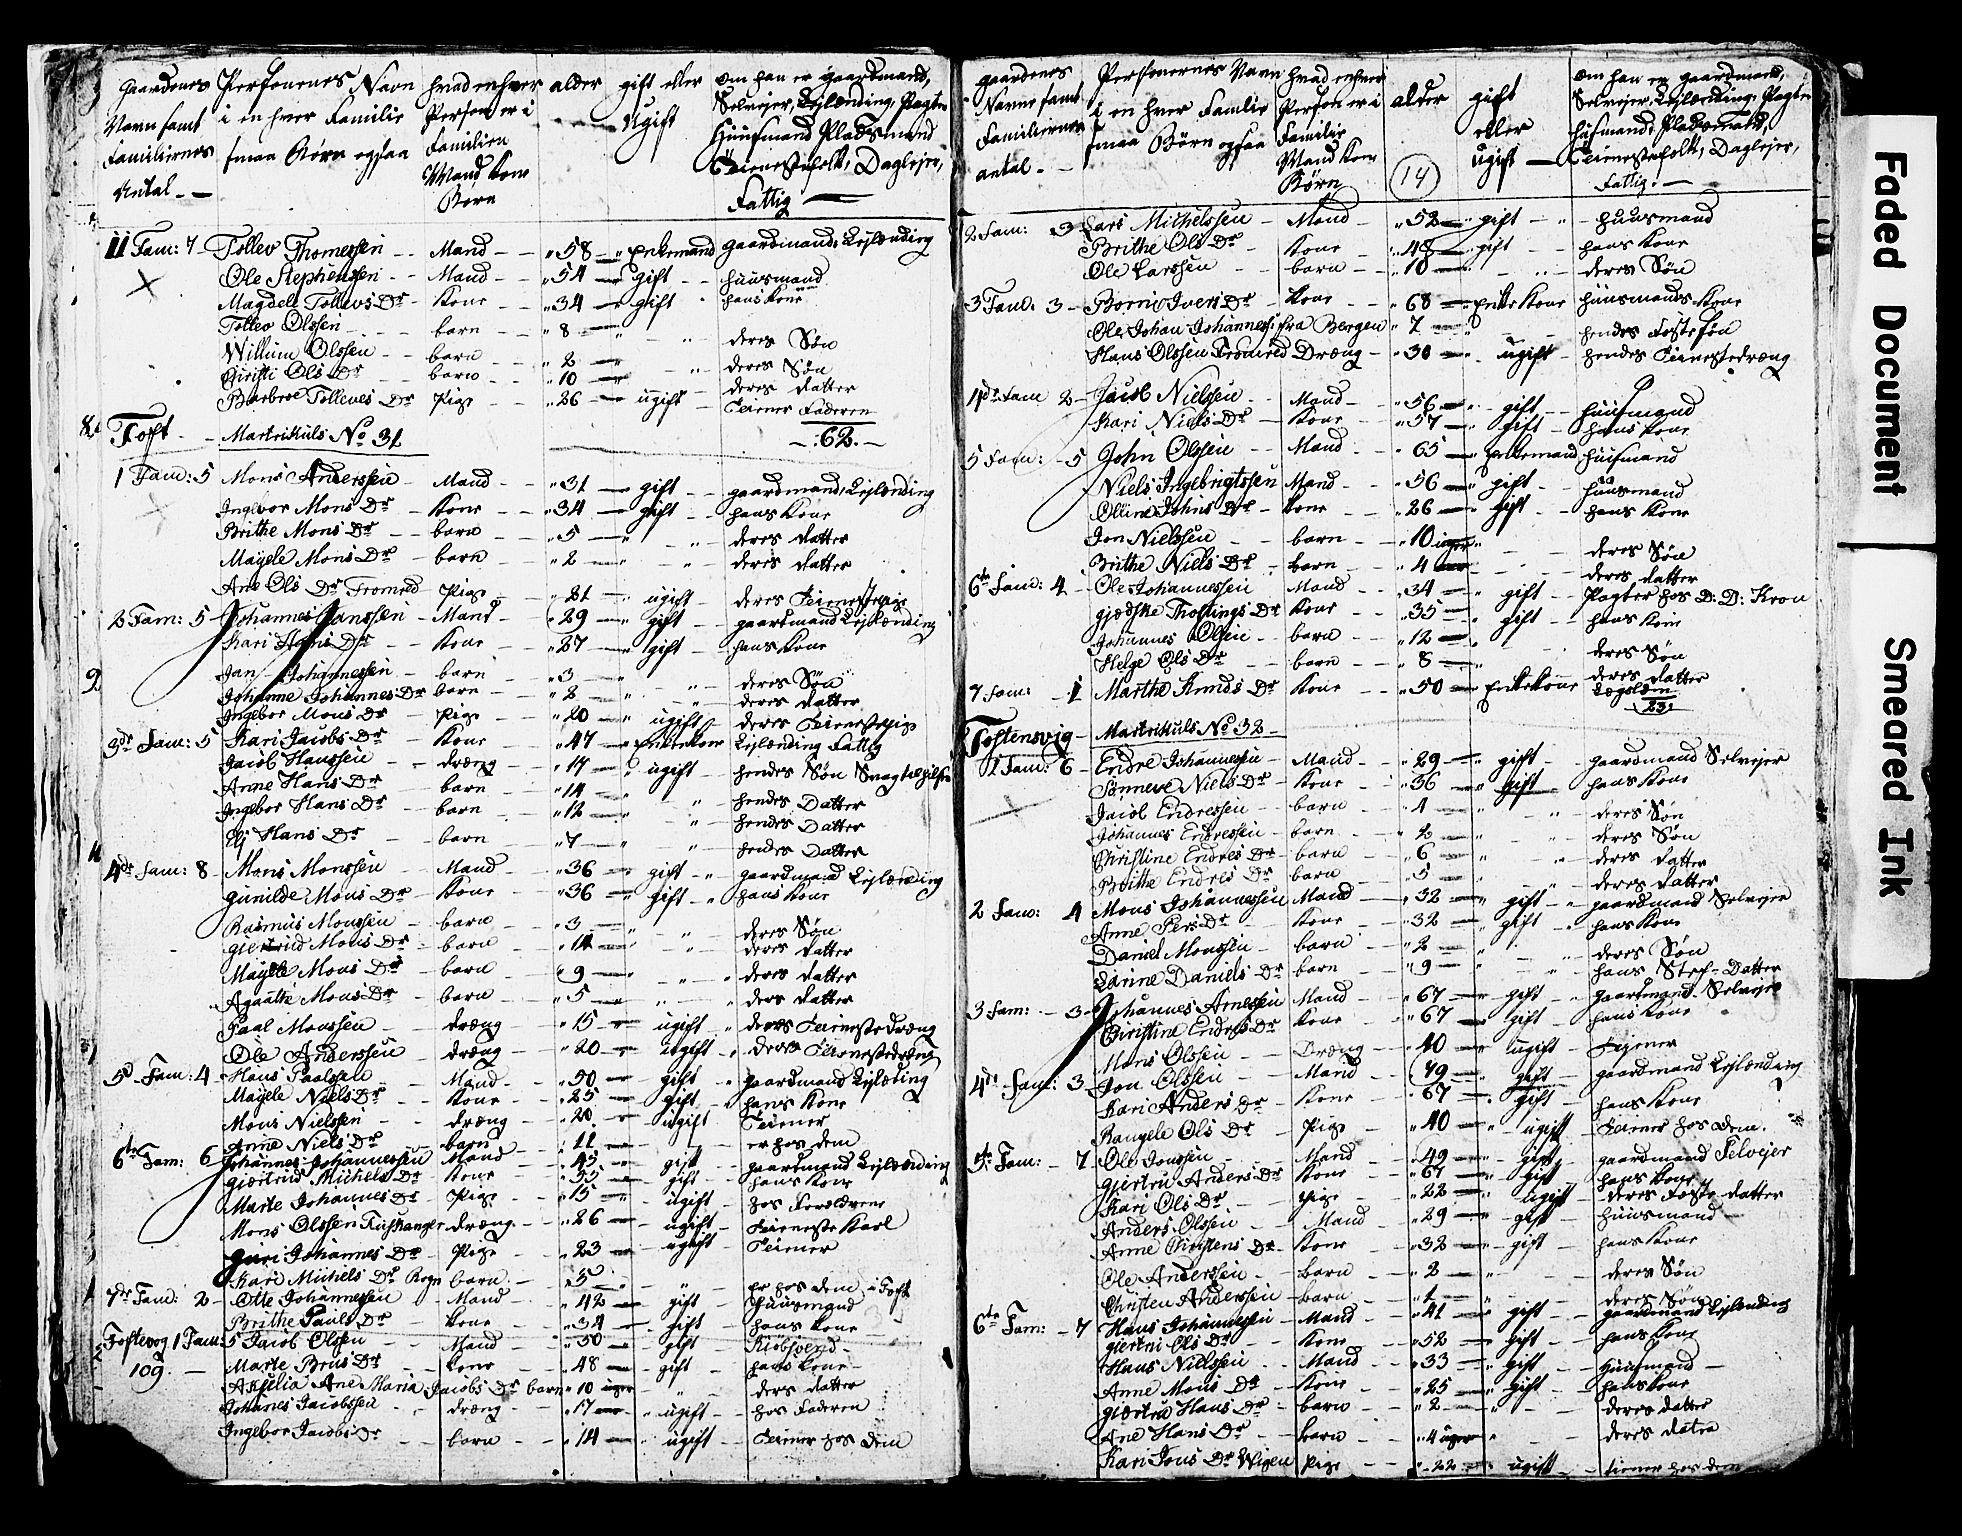 Gaardenes Navn samt Familiernes Antal
Personenes Navn i en hver Familie smaa Børn ogsaa
hvad enhver Person er i Familien Mand Kone Børn
alder
gift eller Ugift
om han er Gaardmand, Selvejer, Lejlænding, Pagter Huusmand Pladsmand Tienestefolk, Daglejer, Fattig
11 Fam: 7 Tollev Thomessen Mand 58 Enkemand gaardmand Lejlænding
Ole Stephenssen Mand 54 gift huusmand
Magdeli Tollevs Dr Kone 34 gift hans Kone
Tollev Olssen barn 8 deres Søn
Willum Olssen barn 2 deres Søn
Christi Ols Dr barn 10 deres datter
Barbroe Tolleves Dr Pige 26 ugift Tiener Faderen
62
Toft Martrikuls No 31
1 Fam: 5 Mons Anderssen Mand 31 gift gaardmand Lejlænding
Ingebor Mons Dr Kone 34 gift hans Kone
Brithe Mons Dr barn 5 deres datter
Mayele Mons Dr barn 2 deres datter
Ane Ols Dr Fromred Pige 21 ugift deres Tienestepige
2 Fam: 5 Johannes Janssen Mand 29 gift gaardmand Lejlænding
Kari Mons Dr Kone 27 gift hans Kone
Jan Johannessen barn 3 deres Søn
Johanne Johannes Dr barn 2 deres datter
Ingebor Mons Dr Pige 20 ugift deres Tienestepige
3de Fam: 5 Kari Jacobs Dr Kone 47 Enkekone Lejlænding Fattig
Jacob Hanssen dræng 17 ugift hendes Søn
Anne Hans Dr barn 14 hendes Datter
Ingebor Hans Dr barn 12 hendes Datter
Eli Hans Dr barn 7 hendes Datter
4de Fam: 8 Mons Monssen Mand 36 gift gaardmand Lejlænding
Gunilde Mons Dr Kone 36 gift hans Kone
Rasmus Monssen barn 3 deres Søn
Giertrud Mons Dr barn 11 deres datter
Mayele Mons Dr barn 9 deres datter
Agaathe Mons Dr barn 5 deres datter
Paal Monssen dræng 15 ugift deres Tienestedræng
Ole Anderssen dræng 20 ugift deres Tienestedræng
5 Fam: 4 Hans Paalssen Mand 50 gift gaardmand Lejlæding
Mayele Niels Dr Kone 25 gift hans Kone
Mons Nielssen dræng 20 ugift Tiener
Anne Niels Dr barn 11 er hos dem
6te Fam: 6 Johannes Johannessen Mand 45 gift gaardmand Lejlænding
Giertrud Michels Dr Kone 55 gift hans Kone
Marte Johannes Dr Pige 15 ugift hos Forældrene
Mons Olssen dræng 26 ugift Tieneste Karl
Guri Johannes Dr Pige 23 ugift Tiener
Kari Michels Dr barn 5 er hos dem i Toft
7de Fam: 2 Otte Johannessen Mand 42 gift huusmand
Brithe Pauls Dr Kone 34 gift hans Kone
Toftevog 1 Fam: 5 Jacob Olsen Mand 50 gift
109 Marte Brus Dr Kone 48 gift hans Kone
Axselia Ane Maria Jacobs Dr barn 10 uger deres datter
Johanes Jacobssen dræng 17 ugift hos Faderen
Ingebor Jacobs Dr barn 14 ugift Tiener hos dem
gaardenes Navne samt Familiernes antal
Personernes Navn i en hver Familie smaa Børn ogsaa
hvad enhver Person er i Familie Mand Kone Børn
alder
14
gift eller ugift
om han er gaardmand, Selvejer, Lejlænding, Pagter huusmand, Pladsmand, Tienestefolk, Daglejer, Fattig
2 Fam: 3 Lars Michelssen Mand 52 gift huusmand
Brithe Ols Dr Kone 48 gift hans Kone
Ole Larssen barn 10 deres Søn
3 Fam: 3 Borni Ivers Dr Kone 68 Enke Kone huusmands Kone
Ole Johan Johanness: fra Bergen 7 hendes Fostesøn
Hans Olssen Fromred Dræng 30 ugift hendes Tienestedræng
4de Fam 2 Jacob Nielssen Mand 56 gift huusmand
Kari Niels Dr Kone 57 gift hans Kone
5 Fam: 5 John Olssen Mand 65 Enkemand huusmand
Niels Ingebrigtssen Mand 56 gift huusmand
Olline Johns Dr Kone 26 gift hans Kone
Jon Nielssen barn 10 uger deres Søn
Brithe Niels Dr barn 4 deres datter
6te Fam: 4 Ole Johannessen Mand 34 gift Pagter hos D: D: Kron
Gjødske Thostings Dr Kone 35 gift hans Kone
Johannes Olsen barn 12 deres Søn
Helge Ols Dr barn 8 deres datter
7 Fam: 1 Marthe Knuds Dr Kone 50 Enkekone Lægslem
23
Toftensvig Martrikuls No 32
1 Fam: 6 Endre Johannessen Mand 29 gift gaardmand Selvejer
Sønneve Niels Dr Kone 36 gift hans Kone
Jacob Endressen barn 4 deres Søn
Johannes Endressen barn 2 deres Søn
Christine Endres Dr barn 6 deres datter
Brithe Endres Dr barn 5 deres datter
2 Fam: 4 Mons Johannessen Mand 32 gift gaardmand Selvejer
Anne Pers Dr Kone 32 gift hans Kone
Daniel Monssen barn 2 deres Søn
Larine Daniels Dr barn 9 hans Stef-Datter
3 Fam: 3 Johannes Arnessen Mand 67 gift gaardmand Selvejer
Christine Endres Dr Kone 67 gift hans Kone
Mons Olssen Dræng 40 ugift Tjener
4de Fam: 3 Jon Olssen Mand 49 gift gaardmand Lejlænding
Kari Anders Dr Kone 67 gift hans Kone
Rangele Ols Dr Pige 40 ugift Tiener hos dem.
5te Fam: 7 Ole Jonssen Mand 49 gift gaardmand Selvejer
Giertru Anders Dr Kone 67 gift hans Kone
Kari Ols Dr Pige 22 ugift deres Foste datter
Anders Olssen Mand 29 gift huusmand
Anne Christens Dr Kone 32 gift hans Kone
Ole Anderssen barn 2 deres Søn
Christen Anderssen barn 1 deres Søn
6te Fam: 7 Hans Johannessen Mand 41 gift gaardmand Lejlænding
Giertru Ols Dr Kone 52 gift hans Kone
Hans Nielssen Mand 33 gift Huusmand
Anne Mons Dr Kone 25 gift hans Kone
Giertru Hans Dr barn 2 deres datter
Ane Hans Dr barn 4 uger deres datter
Kari Jons Dr Wigen Pige 22 ugift tiener hos dem
Faded Document
Smeared Ink